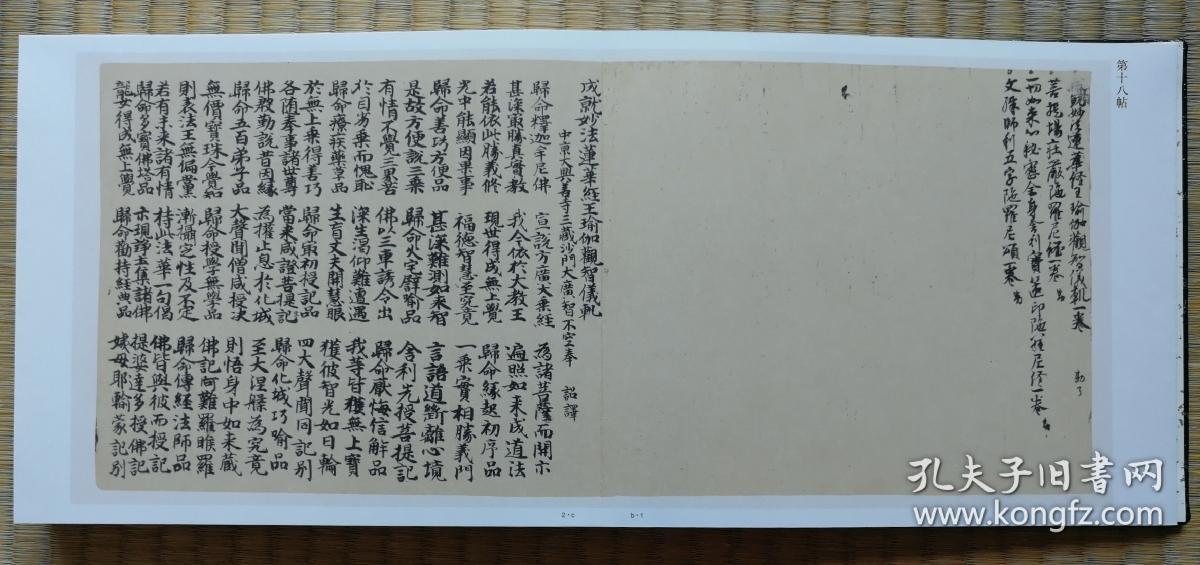 第十八帖
妙法蓮華経王瑜伽觀智儀軌一卷 勘了
菩提場莊嚴陁羅尼經一卷
一切如来心秘密全身舍利寳篋印陁羅尼経一卷
文殊師利五字陁羅尼頌一卷
成就妙法蓮華經王瑜伽觀智儀軌
中京大興善寺三藏沙門大廣智不空奉 詔譯
歸命釋迦牟尼佛 宣說方廣大乗經 為諸菩薩而開示
甚深最勝真實教 我今依於大教王 遍照如来成道法
若能依此勝義修 現世得成無上覺 歸命緣起初序品
光中能顯因果事 福德智慧至究竟 一乗實相勝義門
歸命善巧方便品 甚深難測如来智 言語道斷離心境
是故方便說三乗 歸命火宅譬喻品 舍利先授菩提記
有情不覺三界苦 佛以三車誘令出 歸命厭悔信解品
於自劣乗而愧恥 深生渴仰難遭遇 我等皆獲無上寶
歸命療疾藥草品 生盲丈夫開慧眼 獲彼智光如日輪
於無上乗得善巧 歸命最初授記品 四大聲聞同記別
各随奉事諸世尊 當来咸證菩提記 歸命化城巧喻品
佛教勤說昔因緣 為權止息於化城 至大涅槃為究竟
歸命五百弟子品 大聲聞僧咸授决 則悟身中如来藏
無價寶珠今覺知 歸命授學無學品 佛記阿難羅睺羅
則表法王無偏黨 漸攝定性及不定 歸命傳經法師品
若有手未諸有情 持此法華一句偈 佛皆與彼而授記
歸命多寶佛塔品 示現淨土集諸佛 提婆達多授佛記
龍女得成無上覺 歸命勸持経典品 姨母耶輸蒙記別
2・c
b・1
孔夫子旧书网
www.kongfz.com